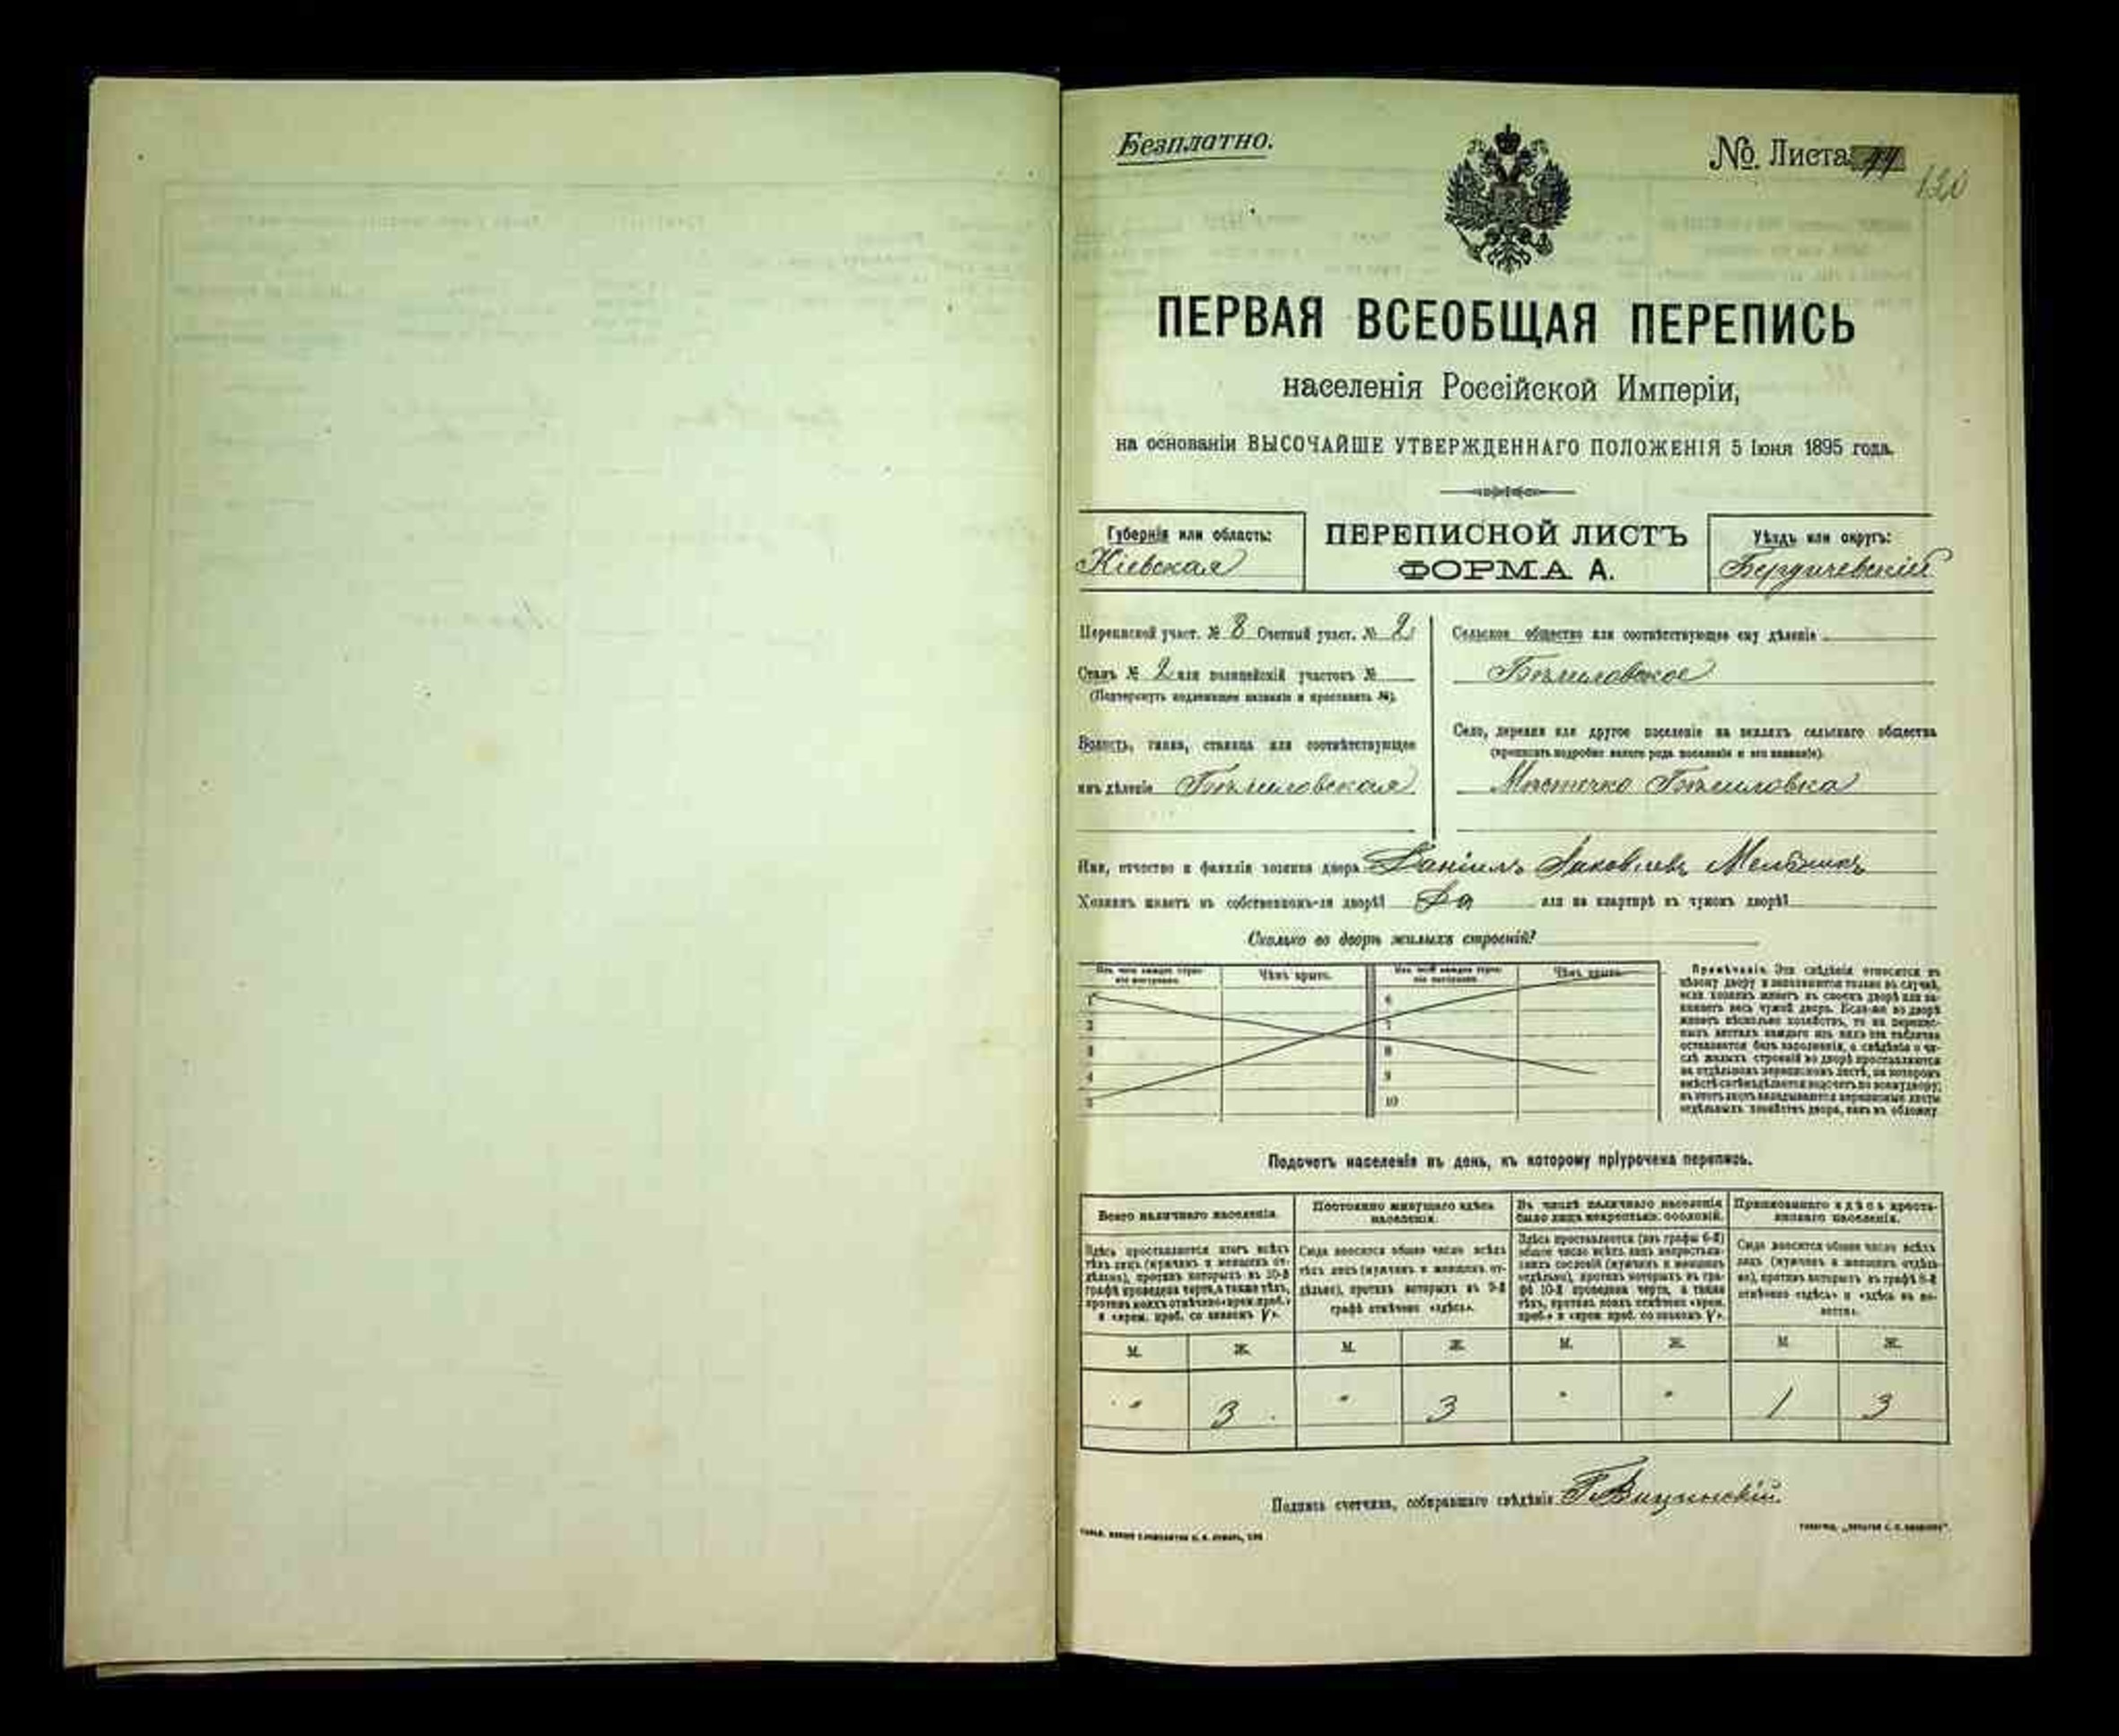 Безплатно.
№ Листа 44
120
ПЕРВАЯ ВСЕОБЩАЯ ПЕРЕПИСЬ
населенія Россійской Имперіи,
на основаніи ВЫСОЧАЙШЕ УТВЕРЖДЕННАГО ПОЛОЖЕНІЯ 5 Іюня 1895 года.
Губернія или область:
Кіевская
ПЕРЕПИСНОЙ ЛИСТЪ
ФОРМА А.
Уѣздъ или округъ:
Бердичевскій
Переписной участ. № 8 Счетный участ. № 2
Станъ № 2 или полицейскій участокъ №
(Подчеркнуть подлежащее названіе и проставить №).
Волость, гмина, станица или соотвѣтствующее
имъ дѣленіе Бѣлиловская
Сельское общество или соотвѣтствующее ему дѣленіе
Бѣлиловское
Село, деревня или другое поселеніе на земляхъ сельскаго общества
(прописать подробно какого рода поселеніе и его названіе).
Мѣстечко Бѣлиловка
Имя, отчество и фамилія хозяина двора Даніилъ Яковлевъ Мельникъ
Хозяинъ живетъ въ собственномъ-ли дворѣ? Да или на квартирѣ въ чужомъ дворѣ?
Сколько во дворѣ жилыхъ строеній?
Изъ чего каждое строе-
ніе построено.
Чѣмъ крыто.
Изъ чего каждое строе-
ніе построено.
Чѣмъ крыто.
1 6
2 7
3 8
4 9
5 10
Примѣчаніе. Эти свѣдѣнія относятся къ
цѣлому двору и заполняются только въ случаѣ,
если хозяинъ живетъ въ своемъ дворѣ или за-
нимаетъ весь чужой дворъ. Если-же во дворѣ
живетъ нѣсколько хозяйствъ, то на перепис-
ныхъ листахъ каждаго изъ нихъ эта табличка
оставляется безъ заполненія, а свѣдѣнія о чи-
слѣ жилыхъ строеній во дворѣ проставляются
на отдѣльномъ переписномъ листѣ, на которомъ
вмѣстѣ съ тѣмъ дѣлается подсчетъ по всему двору;
въ этотъ листъ вкладываются переписные листы
отдѣльныхъ хозяйствъ двора, какъ въ обложку
Подсчетъ населенія въ день, къ которому пріурочена перепись.
Всего наличнаго населенія.
Здѣсь проставляется итогъ всѣхъ
тѣхъ лицъ (мужчинъ и женщинъ от-
дѣльно), противъ которыхъ въ 10-й
графѣ проведена черта, а также тѣхъ,
противъ коихъ отмѣчено «врем. преб.»
и «врем. преб. со знакомъ V».
Постоянно живущаго здѣсь
населенія.
Сюда вносится общее число всѣхъ
тѣхъ лицъ (мужчинъ и женщинъ от-
дѣльно), противъ которыхъ въ 9-й
графѣ отмѣчено «здѣсь».
Въ числѣ наличнаго населенія
было лицъ некрестьян. сословій.
Здѣсь проставляется (изъ графы 6-й)
общее число всѣхъ лицъ некрестьян-
скихъ сословій (мужчинъ и женщинъ
отдѣльно), противъ которыхъ въ гра-
фѣ 10-й проведена черта, а также
тѣхъ, противъ коихъ отмѣчено «врем.
преб.» и «врем. преб. со знакомъ V».
Приписаннаго здѣсь кресть-
янскаго населенія.
Сюда вносится общее число всѣхъ
лицъ (мужчинъ и женщинъ отдѣль-
но), противъ которыхъ въ графѣ 8-й
отмѣчено «здѣсь» и «здѣсь въ во-
лости».
М. Ж. М. Ж. М. Ж. М. Ж.
" 3 " 3 " " 1 3
Подпись счетчика, собиравшаго свѣдѣнія